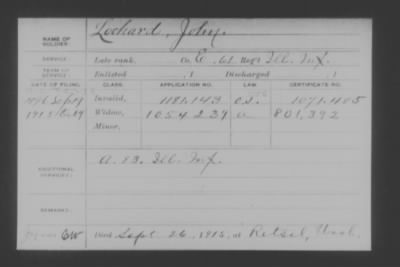 NAME OF SOLDIER: Lochard, John.
SERVICE: Late rank, Co. E, 61 Reg't Ill. Inf.
TERM OF SERVICE: Enlisted , 1 Discharged , 1
DATE OF FILING. CLASS. APPLICATION NO. LAW. CERTIFICATE NO.
Invalid, 1181.143 1071.405
1915 Widow, 1054.239 801,392
Minor,
ADDITIONAL SERVICES: A. 13. Ill. Inf.
REMARKS:
CW Died Sept 26, 1915, at Retsil, Wash.